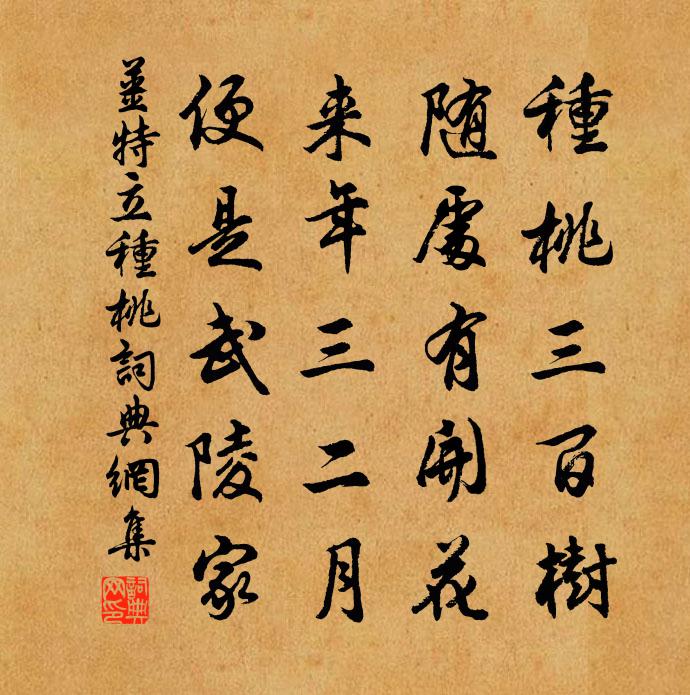 種桃三百樹
随處有開花
来年三二月
便是武陵家
姜特立種桃詞典網集
詞典网印